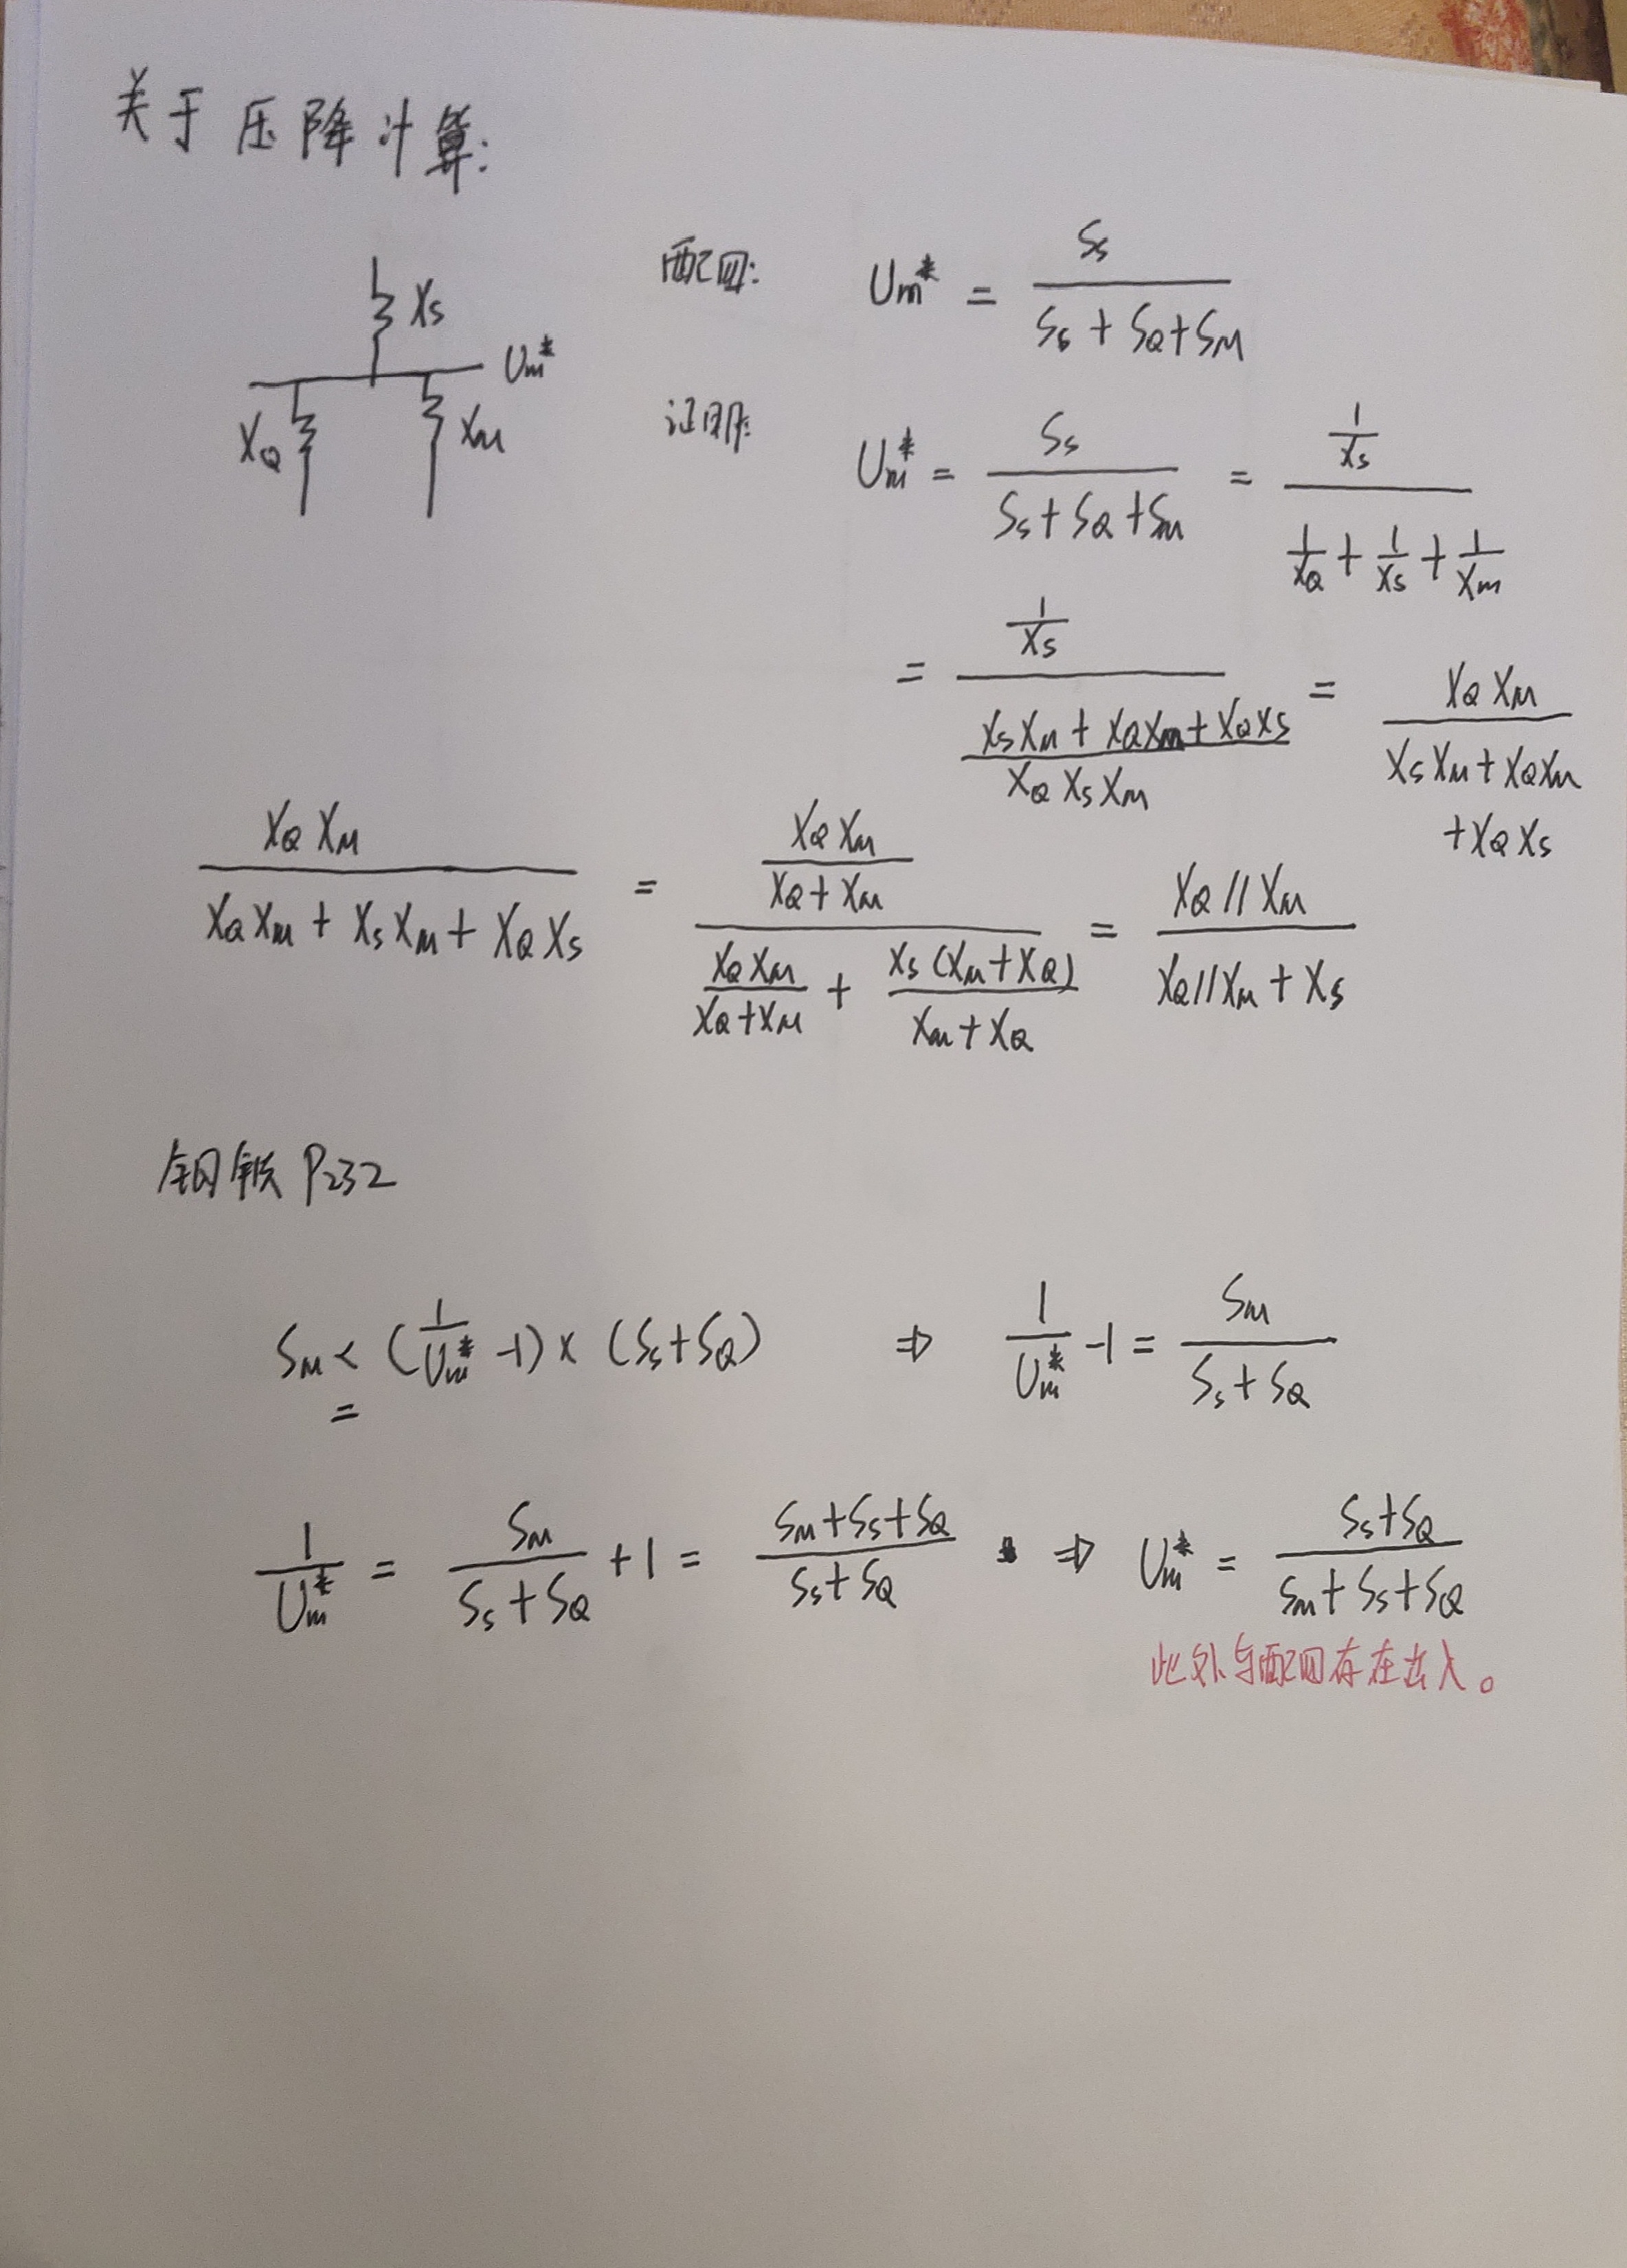 关于压降计算:
配四: Um* = Ss / (Ss + SQ + SM)
XS
Um*
XQ XM
证明: Um* = Ss / (Ss + SQ + SM) = (1/Xs) / (1/XQ + 1/Xs + 1/Xm)
= (1/Xs) / ((XsXM + XQXM + XQXS) / (XQXSXM)) = XQXM / (XsXM + XQXM + XQXS)
XQXM / (XQXM + XsXM + XQXS) = (XQXM / (XQ + XM)) / (XQXM / (XQ + XM) + Xs(XM + XQ) / (XM + XQ)) = XQ//XM / (XQ//XM + XS)
钢铁 P232
SM < (1/Um* - 1) × (Ss + SQ) ⇒ 1/Um* - 1 = SM / (Ss + SQ)
=
1/Um* = SM / (Ss + SQ) + 1 = (SM + Ss + SQ) / (Ss + SQ) ⇒ Um* = (Ss + SQ) / (Sm + Ss + SQ)
此处与配四存在出入。